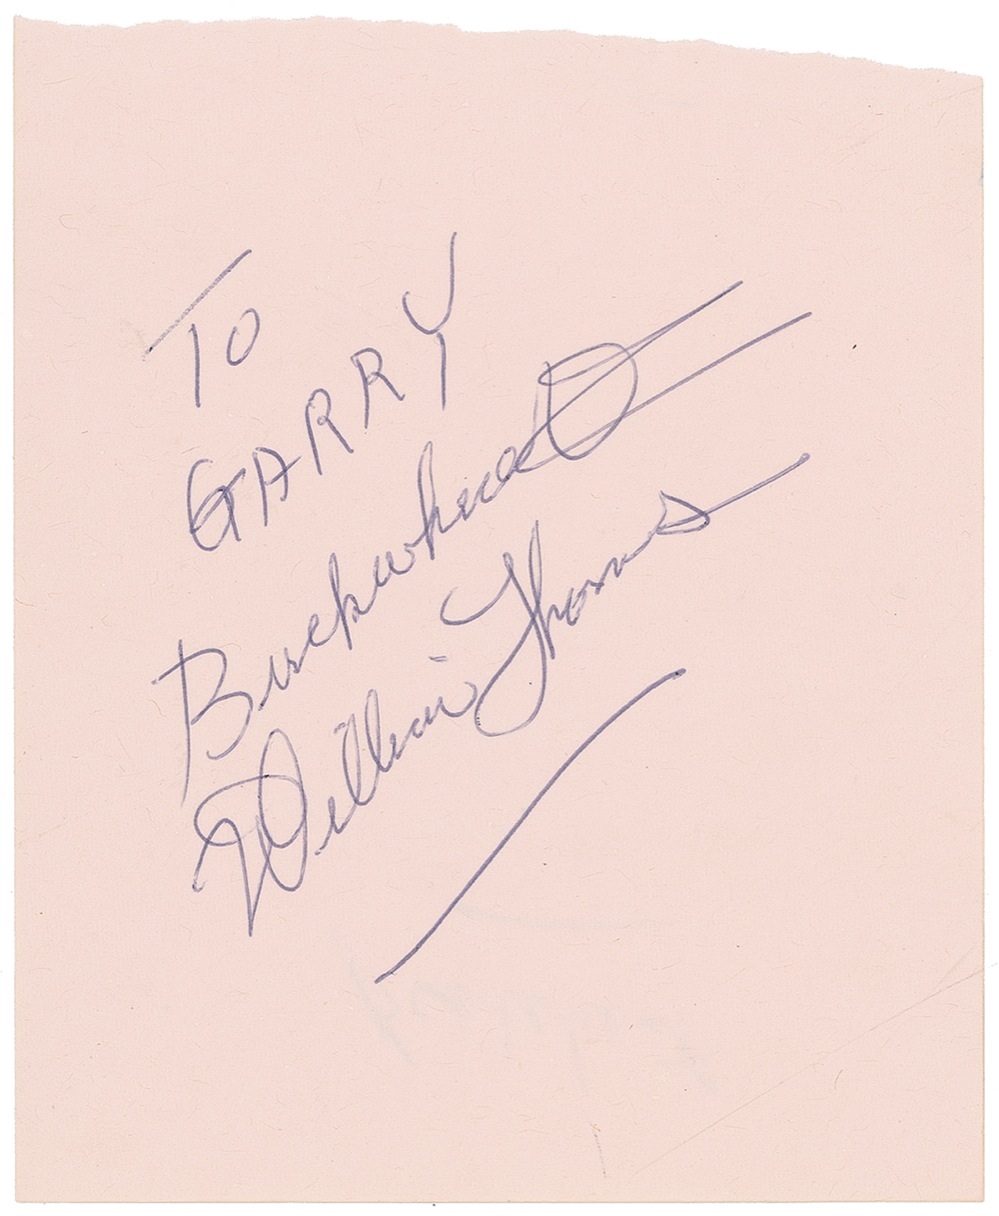 To
GARRY
Buckwheat
William Thomas